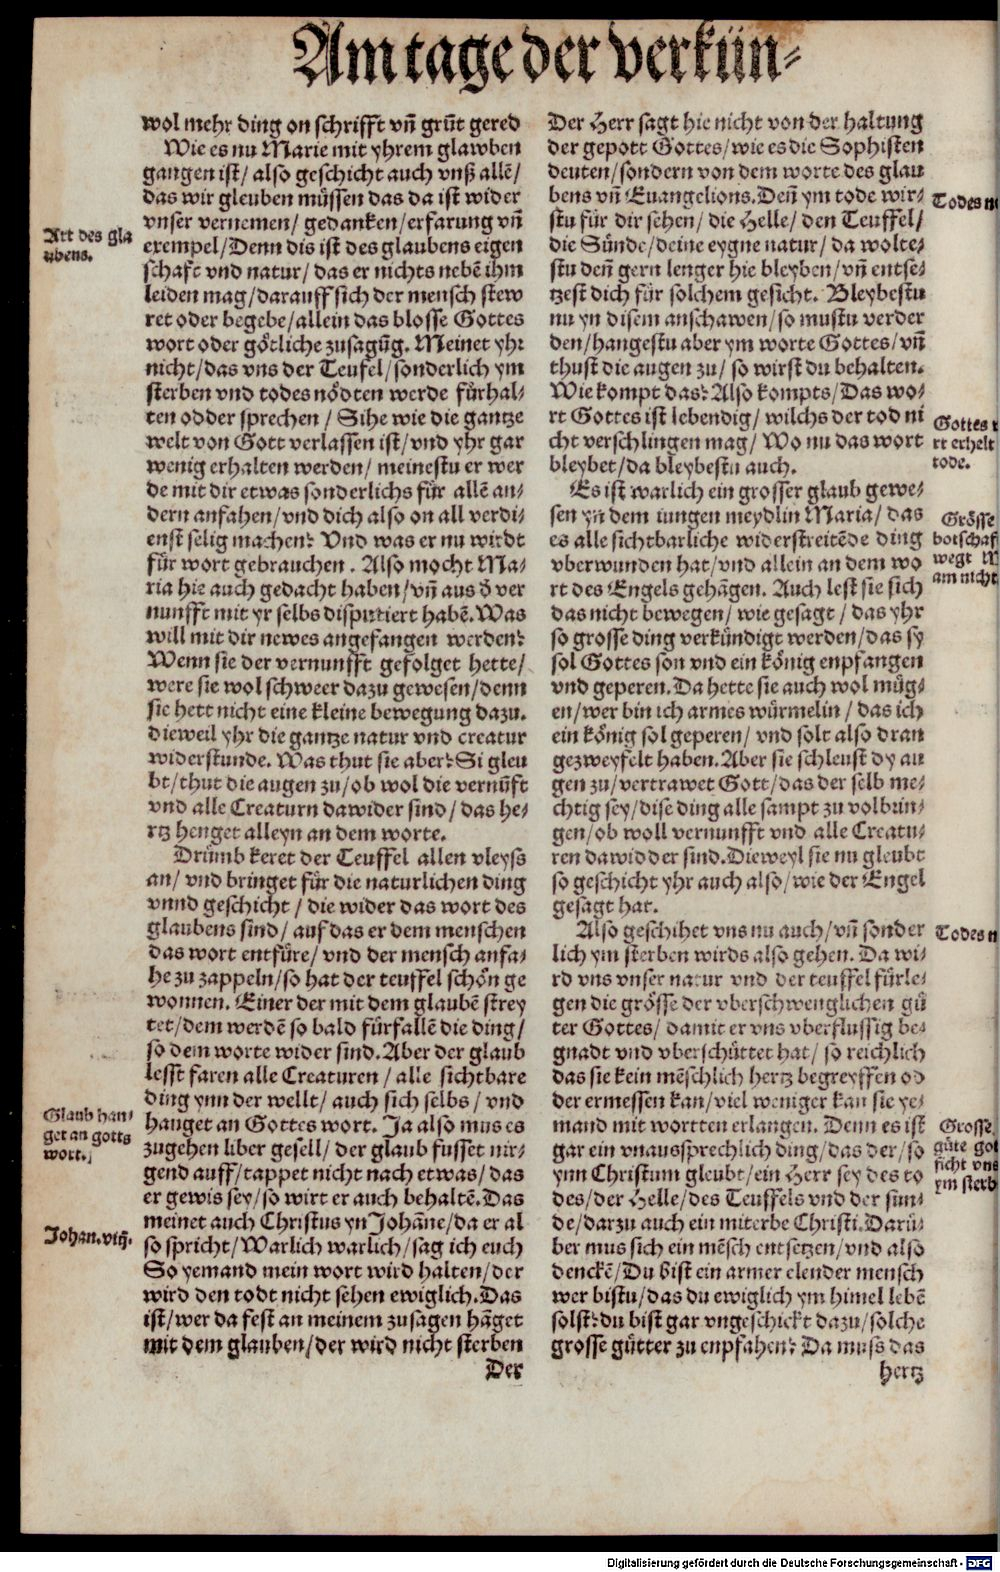 Am tage der verkün⸗
wol mehr ding on schrifft vñ grũt gered
Wie es nu Marie mit yhrem glawben
gangen ist/ also geschicht auch vnß allẽ/
das wir gleuben müssen das da ist wider
vnser vernemen/ gedanken/erfarung vñ
exempel/Denn dis ist des glaubens eigen
schafft vnd natur/das er nichts nebẽ ihm
leiden mag/darauff sich der mensch stew
ret oder begebe/allein das blosse Gottes
wort oder götliche zusagũg. Meinet yhr
nicht/das vns der Teufel/sonderlich ym
sterben vnd todes nödten werde fürhal⸗
ten odder sprechen/ Sihe wie die gantze
welt von Gott verlassen ist/vnd yhr gar
wenig erhalten werden/ meinestu er wer
de mit dir etwas sonderlichs für allẽ an⸗
dern anfahen/vnd dich also on all verdi⸗
enst selig machen? Vnd was er nu wirdt
für wort gebrauchen. Also mocht Ma⸗
ria hie auch gedacht haben/vñ aus d̕ ver
nunfft mit yr selbs disputiert habẽ. Was
will mit dir newes angefangen werden?
Wenn sie der vernunfft gefolget hette/
were sie wol schweer dazu gewesen/denn
sie hett nicht eine kleine bewegung dazu.
dieweil yhr die gantze natur vnd creatur
widerstunde. Was thut sie aber? Si gleu
bt/thut die augen zu/ob wol die vernũft
vnd alle Creaturn dawider sind/das he⸗
rtz henget alleyn an dem worte.
Drümb keret der Teuffel allen vleyss
an/ vnd bringet für die naturlichen ding
vnnd geschicht/ die wider das wort des
glaubens sind/ auf das er dem menschen
das wort entfüre/vnd der mensch anfa⸗
he zu zappeln/so hat der teuffel schön ge
wonnen. Einer der mit dem glaubẽ strey
tet/dem werdẽ so bald fürfallẽ die ding/
so dem worte wider sind. Aber der glaub
lesst faren alle Creaturen/alle sichtbare
ding ynn der wellt/ auch sich selbs/ vnd
hanget an Gottes wort. Ja also mus es
zugehen liber gesell/ der glaub fusset nir⸗
gend auff/tappet nicht nach etwas/das
er gewis sey/so wirt er auch behaltẽ. Das
meinet auch Christus yn Johãne/da er al
so spricht/Warlich warlich/sag ich euch
So yemand mein wort wird halten/der
wird den todt nicht sehen ewiglich. Das
ist/wer da fest an meinem zusagen hãget
mit dem glauben/der wird nicht sterben
Der
Art des gla
ubens.
Glaub han⸗
get an gotts
wort.
Johan. viij.
Der Herr sagt hie nicht von der haltung
der gepott Gottes/wie es die Sophisten
deuten/sondern von dem worte des glau
bens vñ Euangelions. Deñ ym tode wir⸗
stu für dir sehen/ die Helle/ den Teuffel/
die Sünde/deine eygne natur/ da wolte⸗
stu deñ gern lenger hie bleyben/vñ entse⸗
tzest dich für solchem gesicht. Bleybestu
nu yn disem anschawen/so mustu verder
den/hangestu aber ym worte Gottes/vñ
thust die augen zu/ so wirst du behalten.
Wie kompt das? Also kompts/Das wo⸗
rt Gottes ist lebendig/ wilchs der tod ni
cht verschlingen mag/ Wo nu das wort
bleybet/da bleybestu auch.
Es ist warlich ein grosser glaub gewe⸗
sen yn dem iungen meydlin Maria/ das
es alle sichtbarliche widerstreitẽde ding
vberwunden hat/vnd allein an dem wo
rt des Engels gehãgen. Auch lest sie sich
das nicht bewegen/ wie gesagt/ das yhr
so grosse ding verkündigt werden/das sy
sol Gottes son vnd ein könig enpfangen
vnd geperen. Da hette sie auch wol müg⸗
en/wer bin ich armes würmelin/ das ich
ein könig sol geperen/ vnd solt also dran
gezweyfelt haben. Aber sie schleust dy au
gen zu/vertrawet Gott/das der selb me⸗
chtig sey/dise ding alle sampt zu volbrin⸗
gen/ob woll vernunfft vnd alle Creatu⸗
ren dawidder sind. Dieweyl sie nu gleubt
so geschicht yhr auch also/wie der Engel
gesagt hat.
Also geschihet vns nu auch/vñ sonder
lich ym sterben wirds also gehen. Da wi⸗
rd vns vnser natur vnd der teuffel fürle⸗
gen die grösse der vberschwenglichen gü
ter Gottes/ damit er vns vberflussig be⸗
gnadt vnd vberschüttet hat/ so reichlich
das sie kein mẽschlich hertz begreyffen od
der ermessen kan/viel weniger kan sie ye⸗
mand mit wortten erlangen. Denn es ist
gar ein vnaussprechlich ding/das der/so
ynn Christum gleubt/ein Herr sey des to
des/der Helle/des Teuffels vnd der sun⸗
de/darzu auch ein miterbe Christi. Darü⸗
ber mus sich ein mẽsch entsetzen/vnd also
denckẽ/Du bist ein armer elender mensch
wer bistu/das du ewiglich ym himel lebẽ
solst? du bist gar vngeschickt dazu/solche
grosse gütter zu enpfahen? Da muss das
hertz
Todes n
Gottes
rt erhelt
tode.
Grösse
botschaf
wegt M
am nicht
Todes n
Grosse
güte got
ficht vns
ym sterb
Digitalisierung gefördert durch die Deutsche Forschungsgemeinschaft - DFG